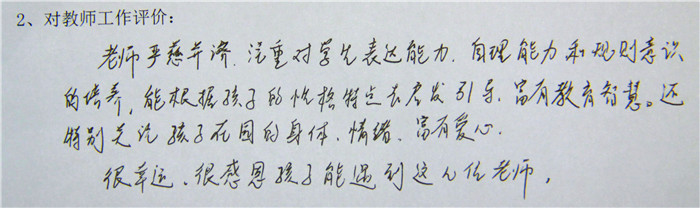 2、对教师工作评价：
老师严慈并济，注重对学生表达能力、自理能力和规则意识
的培养，能根据孩子的性格特点去启发引导，富有教育智慧。还
特别关注孩子在园的身体、情绪，富有爱心。
很幸运、很感恩孩子能遇到这几位老师。